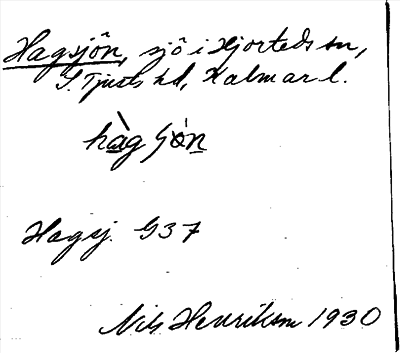 Hagsjön, sjö i Hjorteds sn,
S. Tjusts hd, Kalmar l.
hàg
Hagsj. G37
Nils Henriksson 1930